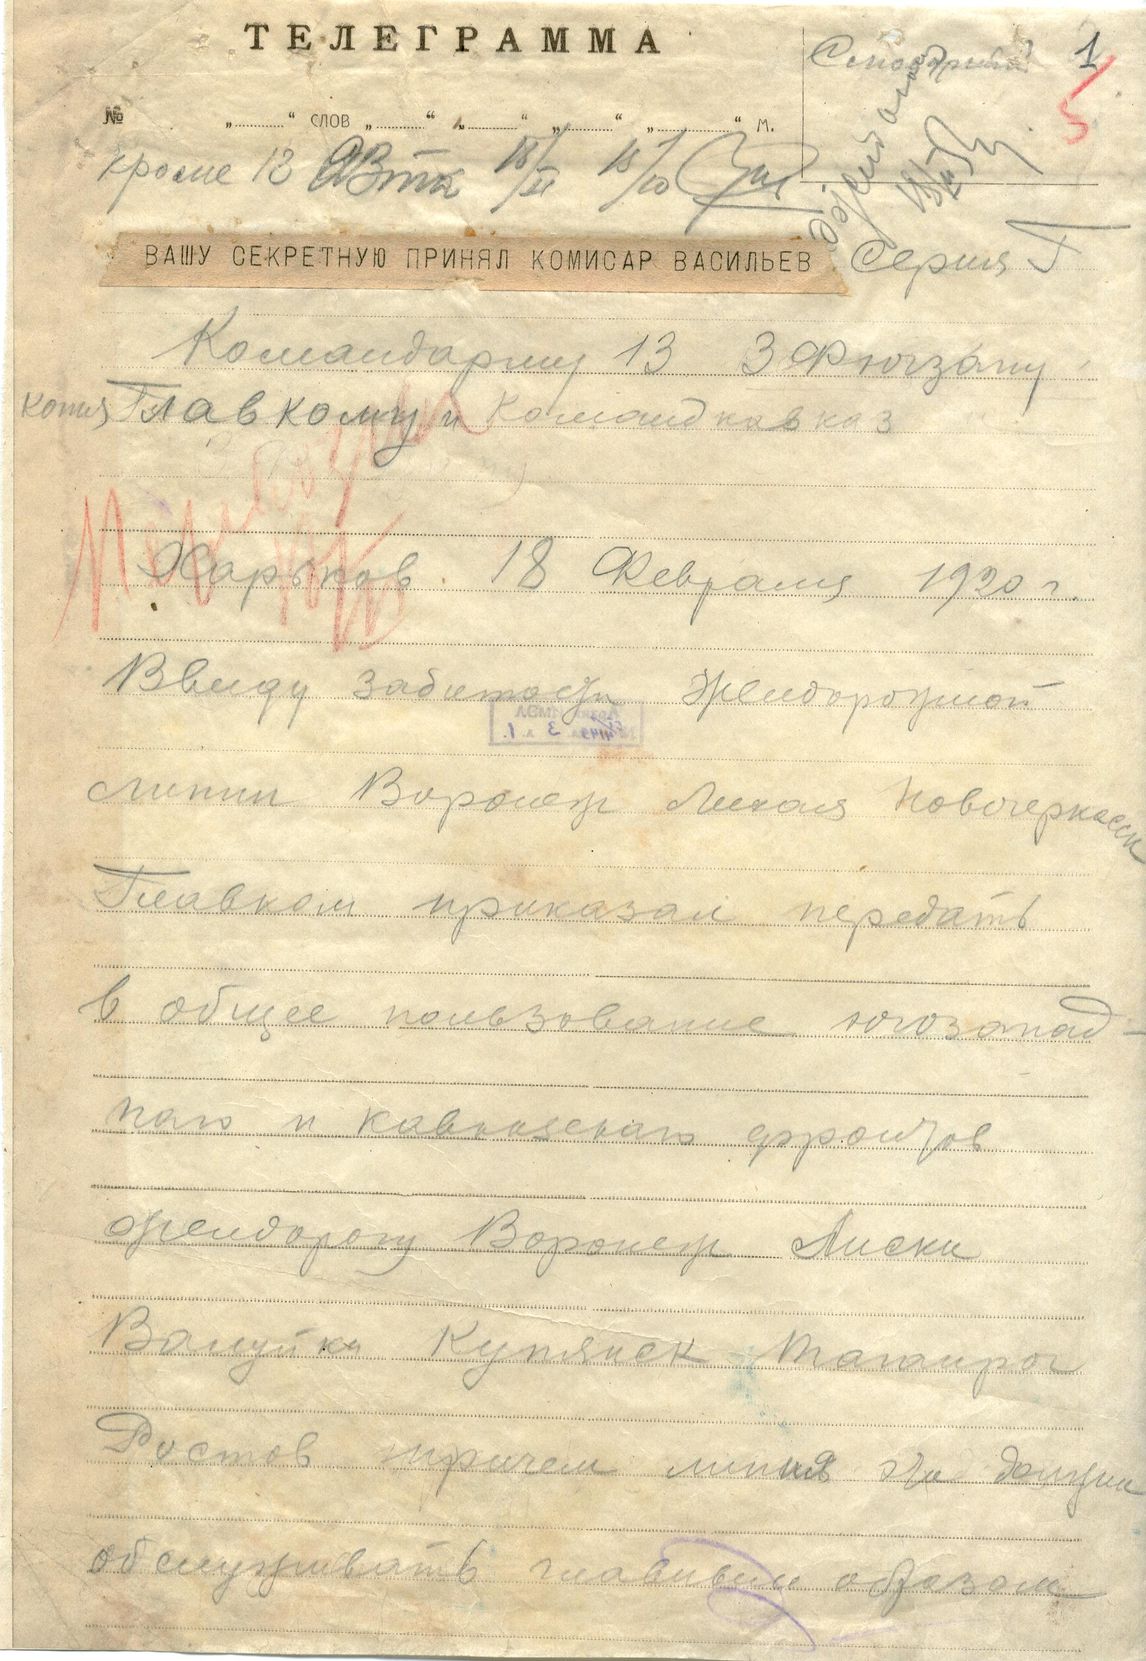 ТЕЛЕГРАММА
1
5
№ „ “ слов „ “ „ “ „ “ „ “ м.
кроме 13
ВАШУ СЕКРЕТНУЮ ПРИНЯЛ КОМИСАР ВАСИЛЬЕВ
Серия Г
Командарму 13
копия Главкому и Командкавказ
Харьков 18 Февраля 1920 г.
Ввиду забитости желдорожной
линии Воронеж Лихая Новочеркасск
Главком приказал передать
в общее пользование югозапад-
ного и кавказского фронтов
желдорогу Воронеж Лиски
Валуйки Купянск Таганрог
Ростов причем линия эта должна
обслуживать главным образом